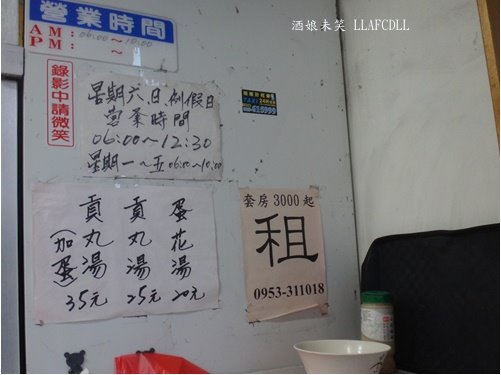 酒娘未笑 LLAFCDLL
營業時間
AM: 06:00~10:00
PM: ~
錄影中請微笑
星期六.日.例假日
營業時間
06:00~12:30
星期一~五06:00~10:00
TAXI 24H
蛋花湯 20元
貢丸湯 25元
貢丸湯(加蛋) 35元
套房3000起
租
0953-311018